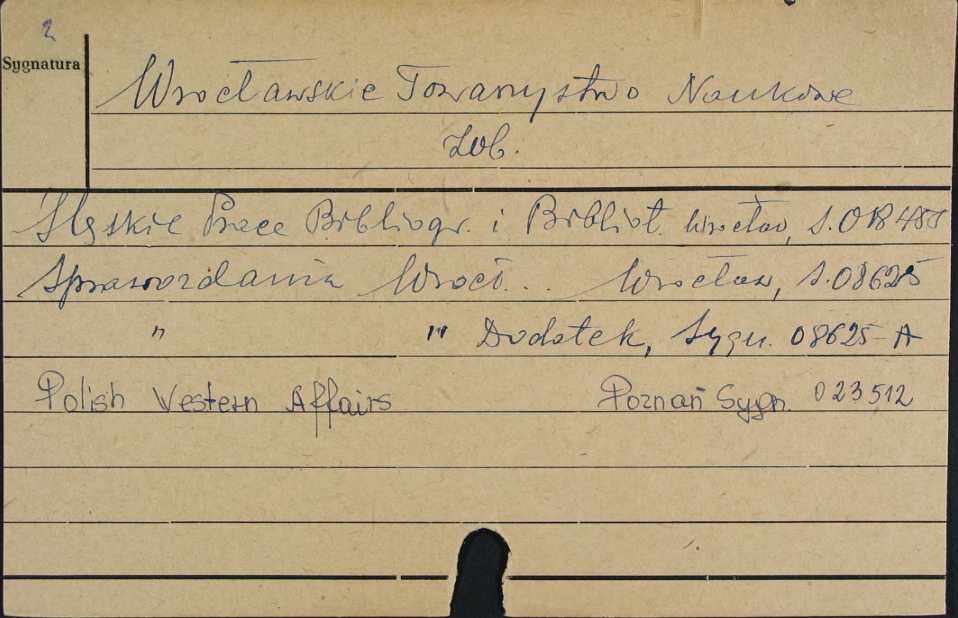 2
Sygnatura
Wrocławskie Towarzystwo Naukowe
Zob.
Śląskie Prace Bibliogr. i Bibliot. Wrocław, S.
Sprawozdania Wrocł... Wrocław, S.08625
" " Dodatek, Sygn. 08625-A
Polish Western Affairs Poznań Sygn. 023512